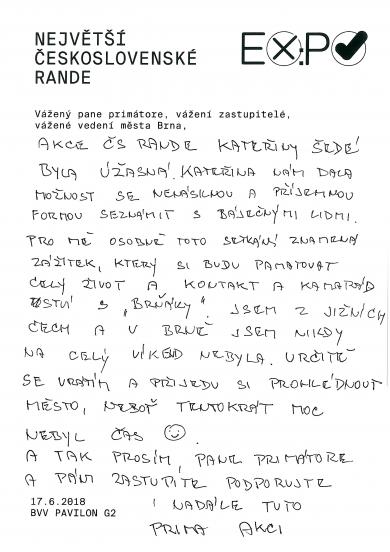 NEJVĚTŠÍ
ČESKOSLOVENSKÉ
RANDE
EXPO
Vážený pane primátore, vážení zastupitelé,
vážené vedení města Brna,
AKCE ČS RANDE KATEŘINY ŠEDÉ
BYLA ÚŽASNÁ. KATEŘINA NÁM DALA
MOŽNOST SE NENÁSILNOU A PŘÍJEMNOU
FORMOU SEZNÁMIT S BÁJEČNÝMI LIDMI.
PRO MĚ OSOBNĚ TOTO SETKÁNÍ ZNAMENÁ
ZÁŽITEK, KTERÝ SI BUDU PAMATOVAT
CELÝ ŽIVOT A KONTAKT A KAMARÁD
STVÍ S „BRŇÁKY". JSEM Z JIŽNÍCH
ČECH A V BRNĚ JSEM NIKDY
NA CELÝ VÍKEND NEBYLA. URČITĚ
SE VRÁTÍM A PŘIJEDU SI PROHLÉDNOUT
MĚSTO, NEBOŤ TENTOKRÁT MOC
NEBYL ČAS ☺.
A TAK PROSÍM, PANE PRIMÁTORE
A PÁNI ZASTUPITE PODPORUJTE
I NADÁLE TUTO
PRIMA AKCI
17.6.2018
BVV PAVILON G2